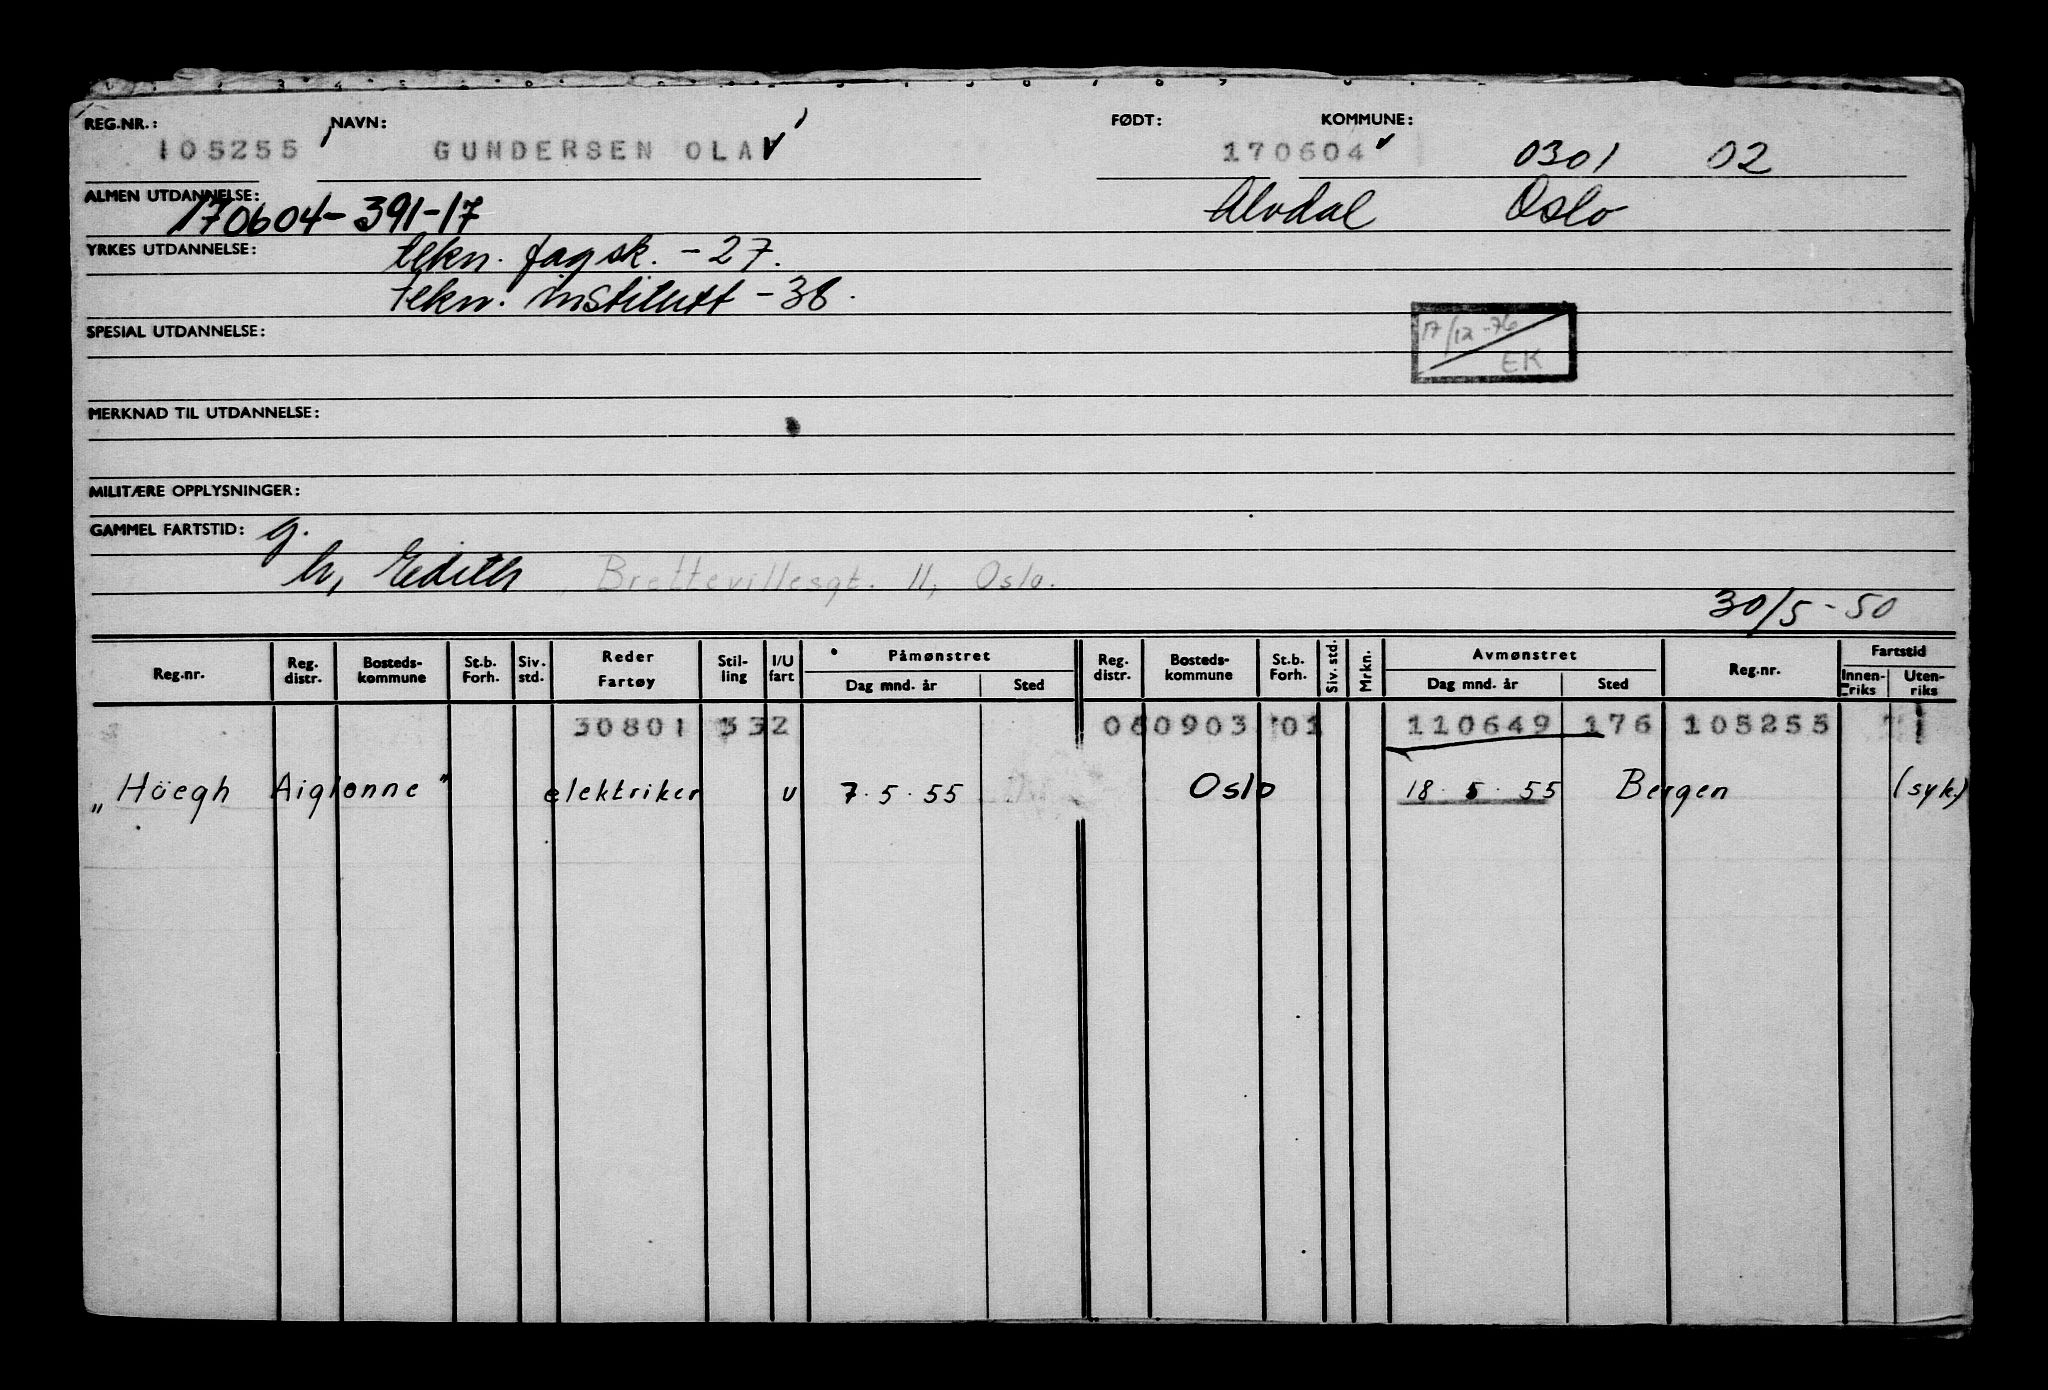 REG.NR.: NAVN: FØDT: KOMMUNE:
105255 GUNDERSEN OLAV 170604 0301 02
ALMEN UTDANNELSE: 170604-391-17 Alvdal Oslo
YRKES UTDANNELSE: tekn. fagsk. -27.
tekn. institutt -38.
SPESIAL UTDANNELSE:
17/12-76
EK
MERKNAD TIL UTDANNELSE:
MILITÆRE OPPLYSNINGER:
GAMMEL FARTSTID: g.
h, Edith, Brettevillesgt. 11, Oslo.
30/5-50
Reg.nr. Reg. distr. Bosteds- kommune St.b. Forh. Siv. std. Reder Fartøy Stil- ling I/U fart Påmønstret Dag mnd. år Sted Reg. distr. Bosteds- kommune St.b. Forh. Siv. std. Mrkn. Avmønstret Dag mnd. år Sted Reg.nr. Fartstid Innen- riks Uten- riks
30801 332 060903 01 110649 176 105255 1
"Höegh Aiglonne" elektriker u 7.5.55 Oslo 18.5.55 Bergen (syk.)